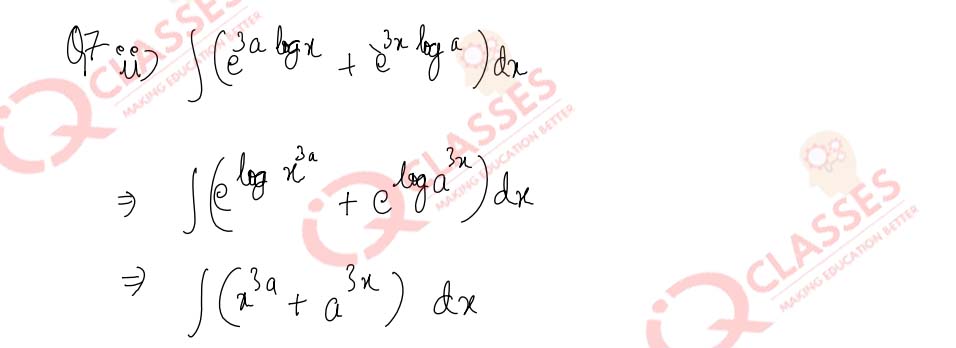 Q7 ii) ∫(e^{3a log x} + e^{3x log a})dx
⇒ ∫(e^{log x^{3a}} + e^{log a^{3x}})dx
⇒ ∫(x^{3a} + a^{3x}) dx
IQ CLASSES
MAKING EDUCATION BETTER
IQ CLASSES
MAKING EDUCATION BETTER
IQ CLASSES
MAKING EDUCATION BETTER